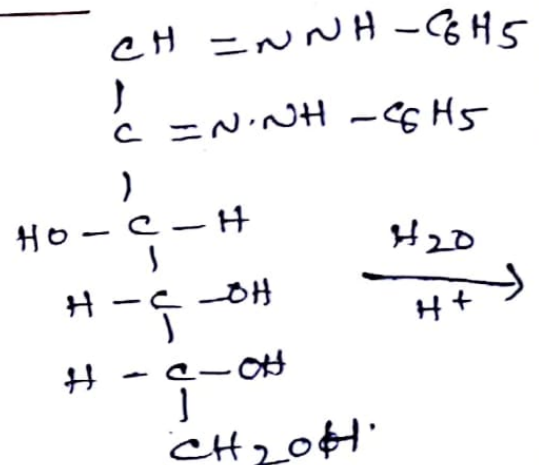 CH = N NH - C6H5
|
C = N·NH - C6H5
|
HO - C - H
|
H - C - OH
|
H - C - OH
|
CH2OH.
H2O
H+